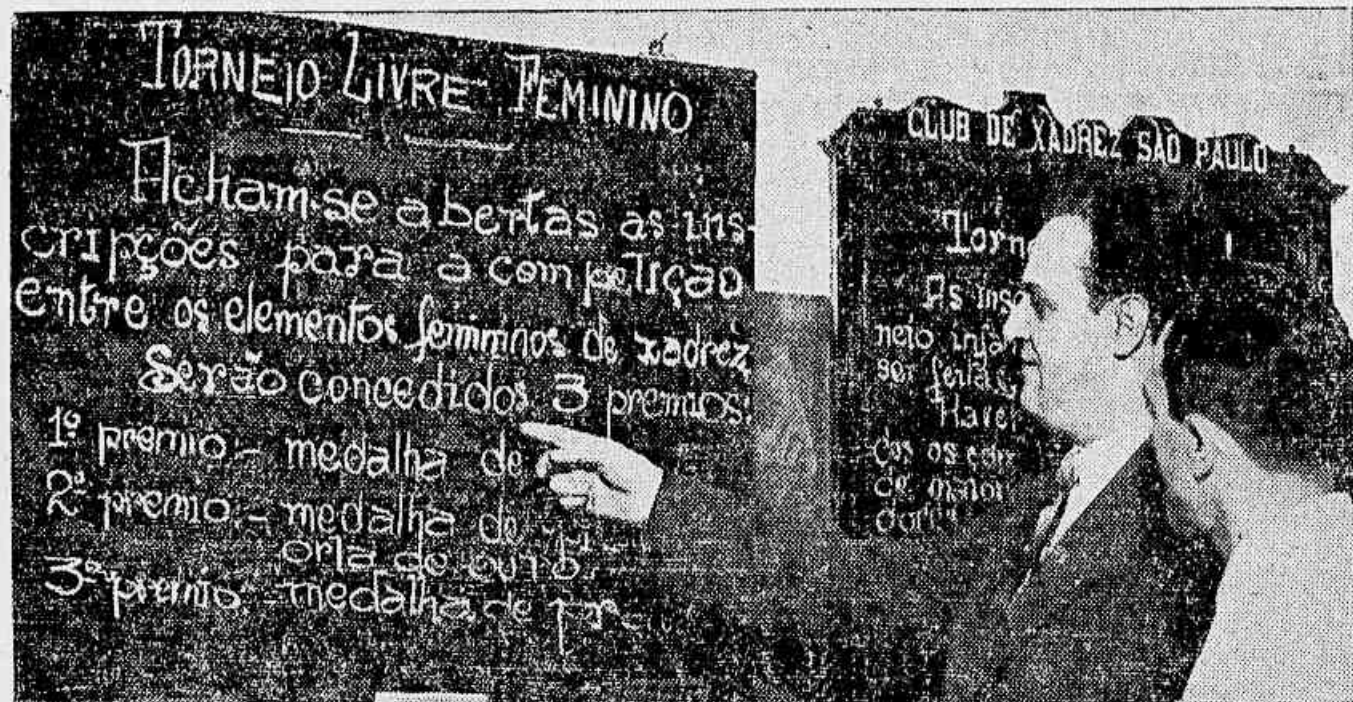 TORNEIO LIVRE FEMININO
Acham-se abertas as ins-
cripções para a competição
entre os elementos femininos de xadrez
Serão concedidos 3 premios:
1º premio - medalha de
2º premio - medalha de
orla de ouro.
3º premio - medalha de
CLUB DE XADREZ SÃO PAULO
Torn
As insc
neio infa
ser feitas
Have
dos os con
de maior